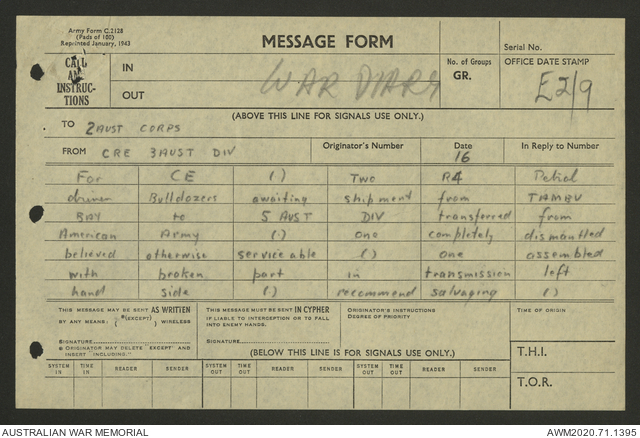 Army Form C.2128
(Pads of 100)
Reprinted January, 1943
MESSAGE FORM
Serial No.
CALL AND INSTRUCTIONS
IN
OUT
WAR DIARY
No. of Groups
GR.
OFFICE DATE STAMP
E2/9
(ABOVE THIS LINE FOR SIGNALS USE ONLY.)
TO 2 AUST CORPS
FROM CRE 3 AUST DIV
Originator's Number
Date
16
In Reply to Number
For CE (.) Two R4 Petrol
driven Bulldozers awaiting shipment from TAMBU
BAY to 5 AUST DIV transferred from
American Army (.) one completely dismantled
believed otherwise serviceable (.) one assembled
with broken part in transmission left
hand side (.) recommend salvaging (.)
THIS MESSAGE MAY BE SENT AS WRITTEN
BY ANY MEANS. (*(EXCEPT) ) WIRELESS
SIGNATURE
ORIGINATOR MAY DELETE EXCEPT AND
INSERT INCLUDING."
THIS MESSAGE MUST BE SENT IN CYPHER
IF LIABLE TO INTERCEPTION OR TO FALL
INTO ENEMY HANDS.
SIGNATURE
ORIGINATOR'S INSTRUCTIONS
DEGREE OF PRIORITY
TIME OF ORIGIN
(BELOW THIS LINE IS FOR SIGNALS USE ONLY.)
T.H.I.
T.O.R.
SYSTEM IN
TIME IN
READER
SENDER
SYSTEM OUT
TIME OUT
READER
SENDER
SYSTEM OUT
TIME OUT
READER
SENDER
AUSTRALIAN WAR MEMORIAL
AWM2020.71.1395